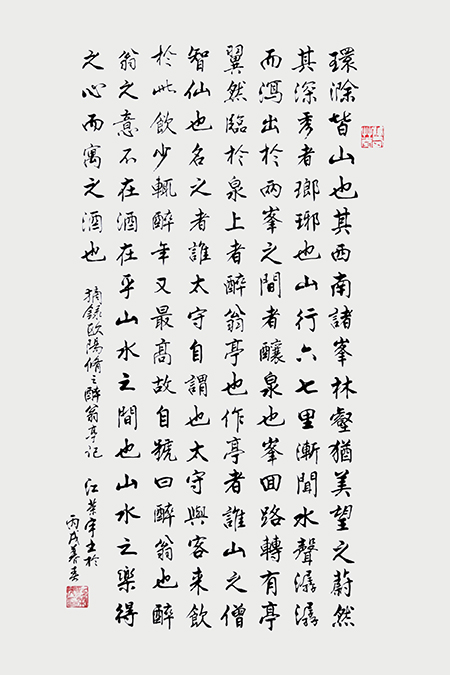 環滁皆山也其西南諸峯林壑猶美望之蔚然
其深秀者瑯琊也山行六七里漸聞水聲潺潺
而瀉出於兩峯之間者釀泉也峯回路轉有亭
翼然臨於泉上者醉翁亭也作亭者誰山之僧
智仙也名之者誰太守自謂也太守與客來飲
於此飲少輒醉年又最高故自號曰醉翁也醉
翁之意不在酒在乎山水之間也山水之樂得
之心而寓之酒也
摘録歐陽脩之醉翁亭记
书於
丙戌暮春